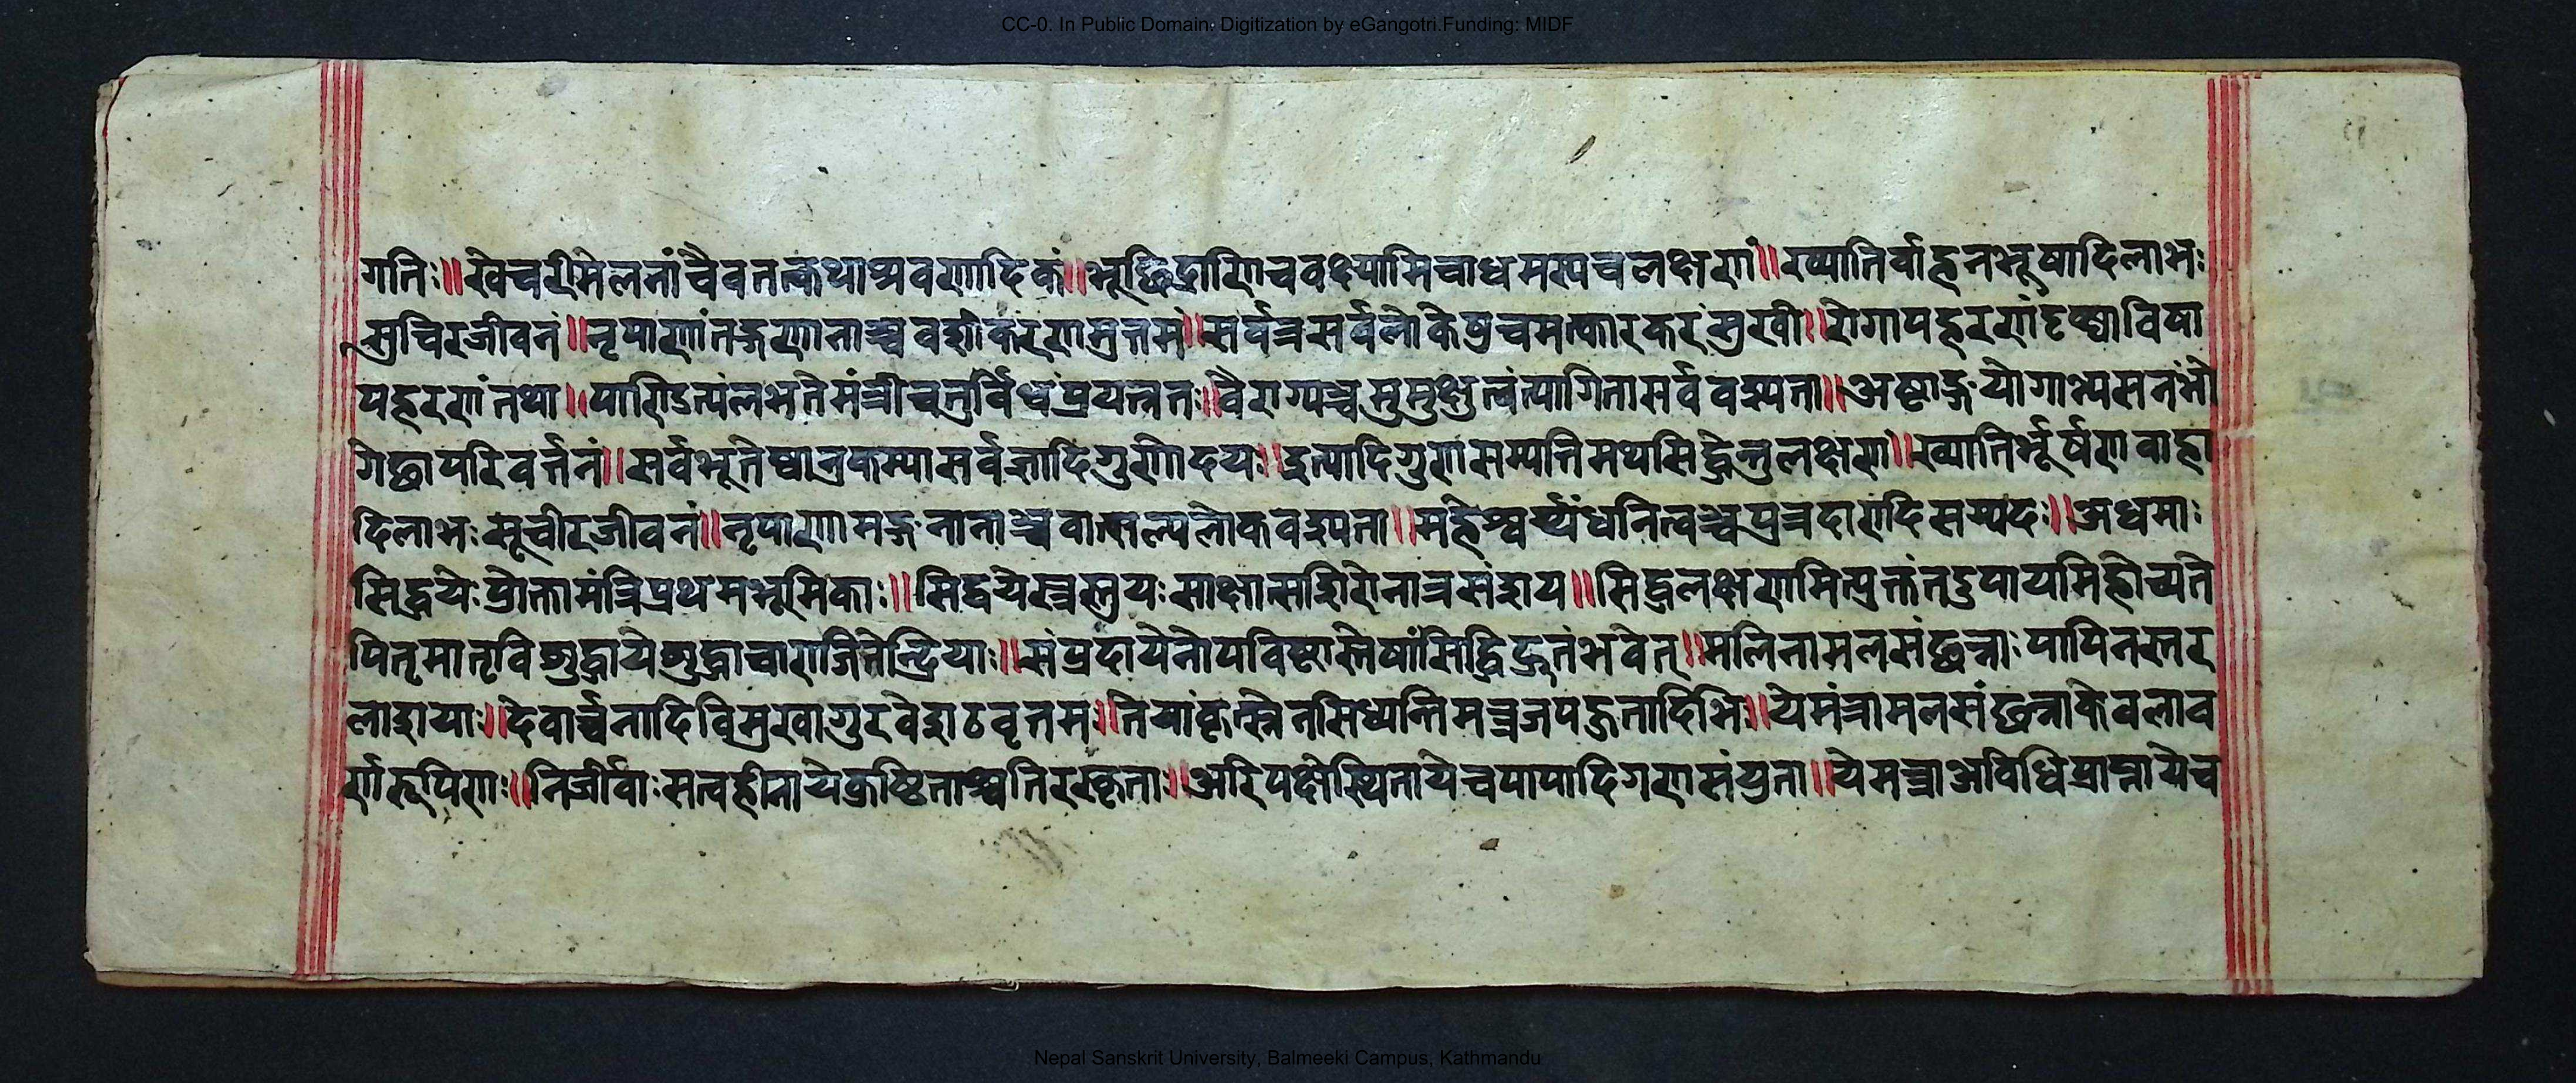 CC-0. In Public Domain. Digitization by eGangotri.Funding: MIDF
गतिः॥खेचरीमेलनांचैवतत्कथाश्रवणादिकं॥भूछिद्राणिचवक्ष्यामिचाधमस्यचलक्षणं॥ख्यातिर्वाहनभूषादिलाभः
सुचिरजीवनं॥नृपाणांतङ्गणानाञ्चवशीकरणमुत्तमं॥सर्वत्रसर्वलोकेषुचमत्कारकरंसुखी॥रोगापहरणंदृष्ट्याविषा
पहरणंतथा॥पाण्डित्यंलभतेमंत्रीचतुर्विधंप्रयत्नत॥वैराग्यञ्चमुमुक्षुत्वंत्यागितासर्ववश्यता॥अष्टाङ्गयोगाभ्यसनंभो
गेछापरिवर्त्तनं॥सर्वभूतेष्वानुकम्पासर्वज्ञादिगुणोदयः॥इत्यादिगुणसम्पत्तिमथसिद्धेन्तुलक्षणं॥ख्यातिर्भूर्षणवाहा
दिलाभःसूचीरजीवनं॥नृपाणामङ्गनानाञ्चवात्सल्पलोकवश्यता॥महेश्वर्य्यंधनित्वञ्चपुत्रदारादिसम्पदः॥अधमाः
सिद्धयेःप्रोक्तामंत्रिप्रथमभूमिकाः॥सिद्धयेस्त्रस्तुयःसाक्षात्सशिरोनात्रसंशय॥सिद्धलक्षणमित्युक्तंतदुपायमिहोच्यते
पितृमातृविशुद्धायेशुद्धाचाराजितेन्द्रियाः॥संप्रदायेनोपविष्टास्तेषांसिद्धिर्द्रुतंभवेत्॥मलिनामलसंछन्नाःपापिनस्तर
लाशयाः॥देवार्च्चनादिविमुखागुरवेशठवृत्तमः॥तेयांकृत्स्नेनसिध्यन्तिमन्त्रजपद्रुतादिभिः॥येमंत्रामलसंछन्नाकेवलाव
र्णरूपिणः॥निर्जीवाःसत्वहीनायेक्रुष्टिताश्चतिरस्कृताः॥अरिपक्षेस्थितायेचपापादिगणसंयुता॥येमन्त्राअविधिप्राप्तायेच
Nepal Sanskrit University, Balmeeki Campus, Kathmandu